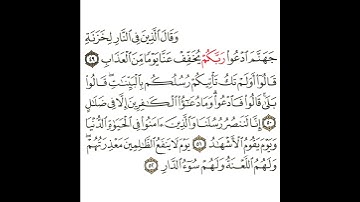 وَقَالَ الَّذِينَ فِي النَّارِ لِخَزَنَةِ
جَهَنَّمَ ادْعُوا رَبَّكُمْ يُخَفِّفْ عَنَّا يَوْمًا مِنَ الْعَذَابِ ٤٩
قَالُوا أَوَلَمْ تَكُ تَأْتِيكُمْ رُسُلُكُمْ بِالْبَيِّنَاتِ ۖ قَالُوا
بَلَىٰ ۚ قَالُوا فَادْعُوا ۗ وَمَا دُعَاءُ الْكَافِرِينَ إِلَّا فِي ضَلَالٍ
٥٠ إِنَّا لَنَنْصُرُ رُسُلَنَا وَالَّذِينَ آمَنُوا فِي الْحَيَاةِ الدُّنْيَا
وَيَوْمَ يَقُومُ الْأَشْهَادُ ٥١ يَوْمَ لَا يَنْفَعُ الظَّالِمِينَ مَعْذِرَتُهُمْ ۖ
وَلَهُمُ اللَّعْنَةُ وَلَهُمْ سُوءُ الدَّارِ ٥٢